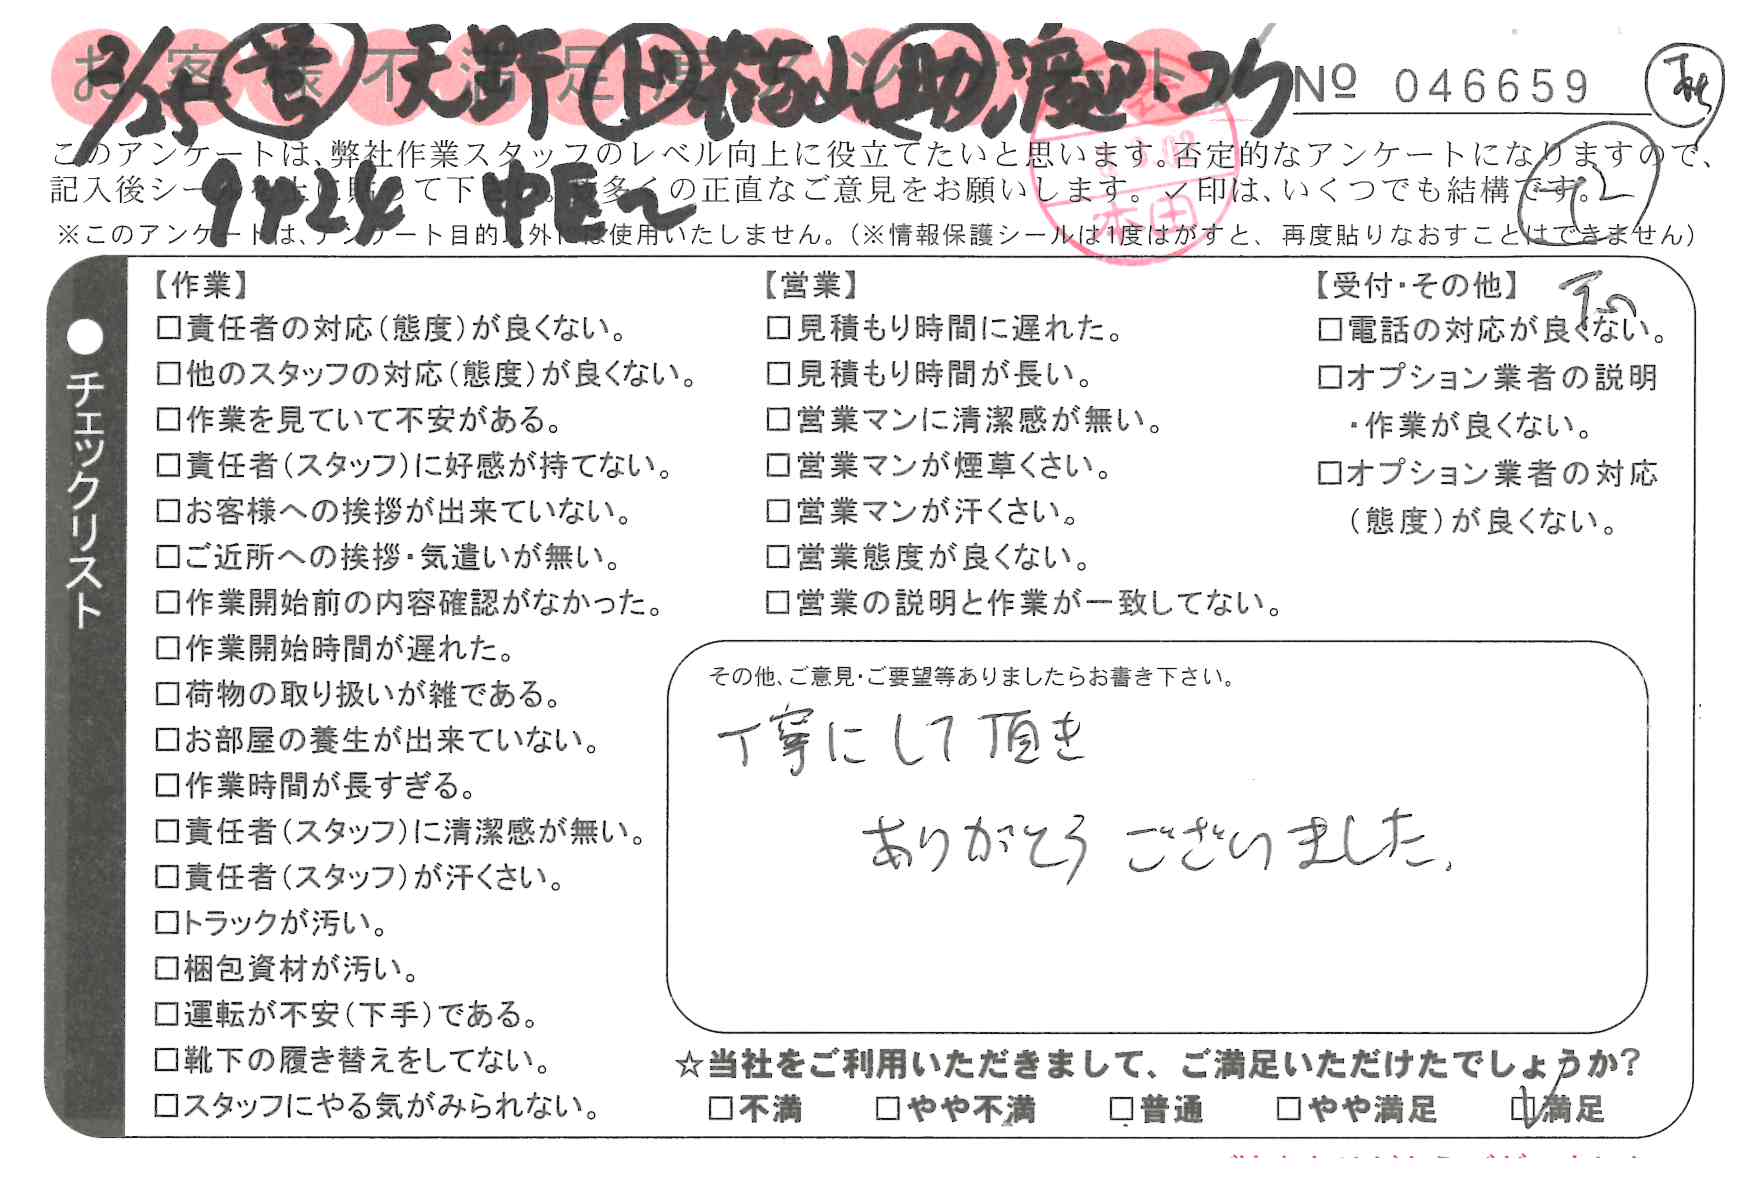 お客様不満足度アンケート
2/25 天野 梅山 助 渡辺
Nº 046659
このアンケートは、弊社作業スタッフのレベル向上に役立てたいと思います。否定的なアンケートになりますので、
記入後シールを上に貼って下さい。数多くの正直なご意見をお願いします。✓印は、いくつでも結構です。
9424 中巨
※このアンケートは、アンケート目的以外には使用いたしません。（※情報保護シールは1度はがすと、再度貼りなおすことはできません）
本田
●チェックリスト
【作業】
□責任者の対応（態度）が良くない。
□他のスタッフの対応（態度）が良くない。
□作業を見ていて不安がある。
□責任者（スタッフ）に好感が持てない。
□お客様への挨拶が出来ていない。
□ご近所への挨拶・気遣いが無い。
□作業開始前の内容確認がなかった。
□作業開始時間が遅れた。
□荷物の取り扱いが雑である。
□お部屋の養生が出来ていない。
□作業時間が長すぎる。
□責任者（スタッフ）に清潔感が無い。
□責任者（スタッフ）が汗くさい。
□トラックが汚い。
□梱包資材が汚い。
□運転が不安（下手）である。
□靴下の履き替えをしてない。
□スタッフにやる気がみられない。
【営業】
□見積もり時間に遅れた。
□見積もり時間が長い。
□営業マンに清潔感が無い。
□営業マンが煙草くさい。
□営業マンが汗くさい。
□営業態度が良くない。
□営業の説明と作業が一致してない。
【受付・その他】
□電話の対応が良くない。
□オプション業者の説明
・作業が良くない。
□オプション業者の対応
（態度）が良くない。
その他、ご意見・ご要望等ありましたらお書き下さい。
丁寧にして頂き
ありがとうございました.
☆当社をご利用いただきまして、ご満足いただけたでしょうか?
□不満 □やや不満 □普通 □やや満足 ☑満足